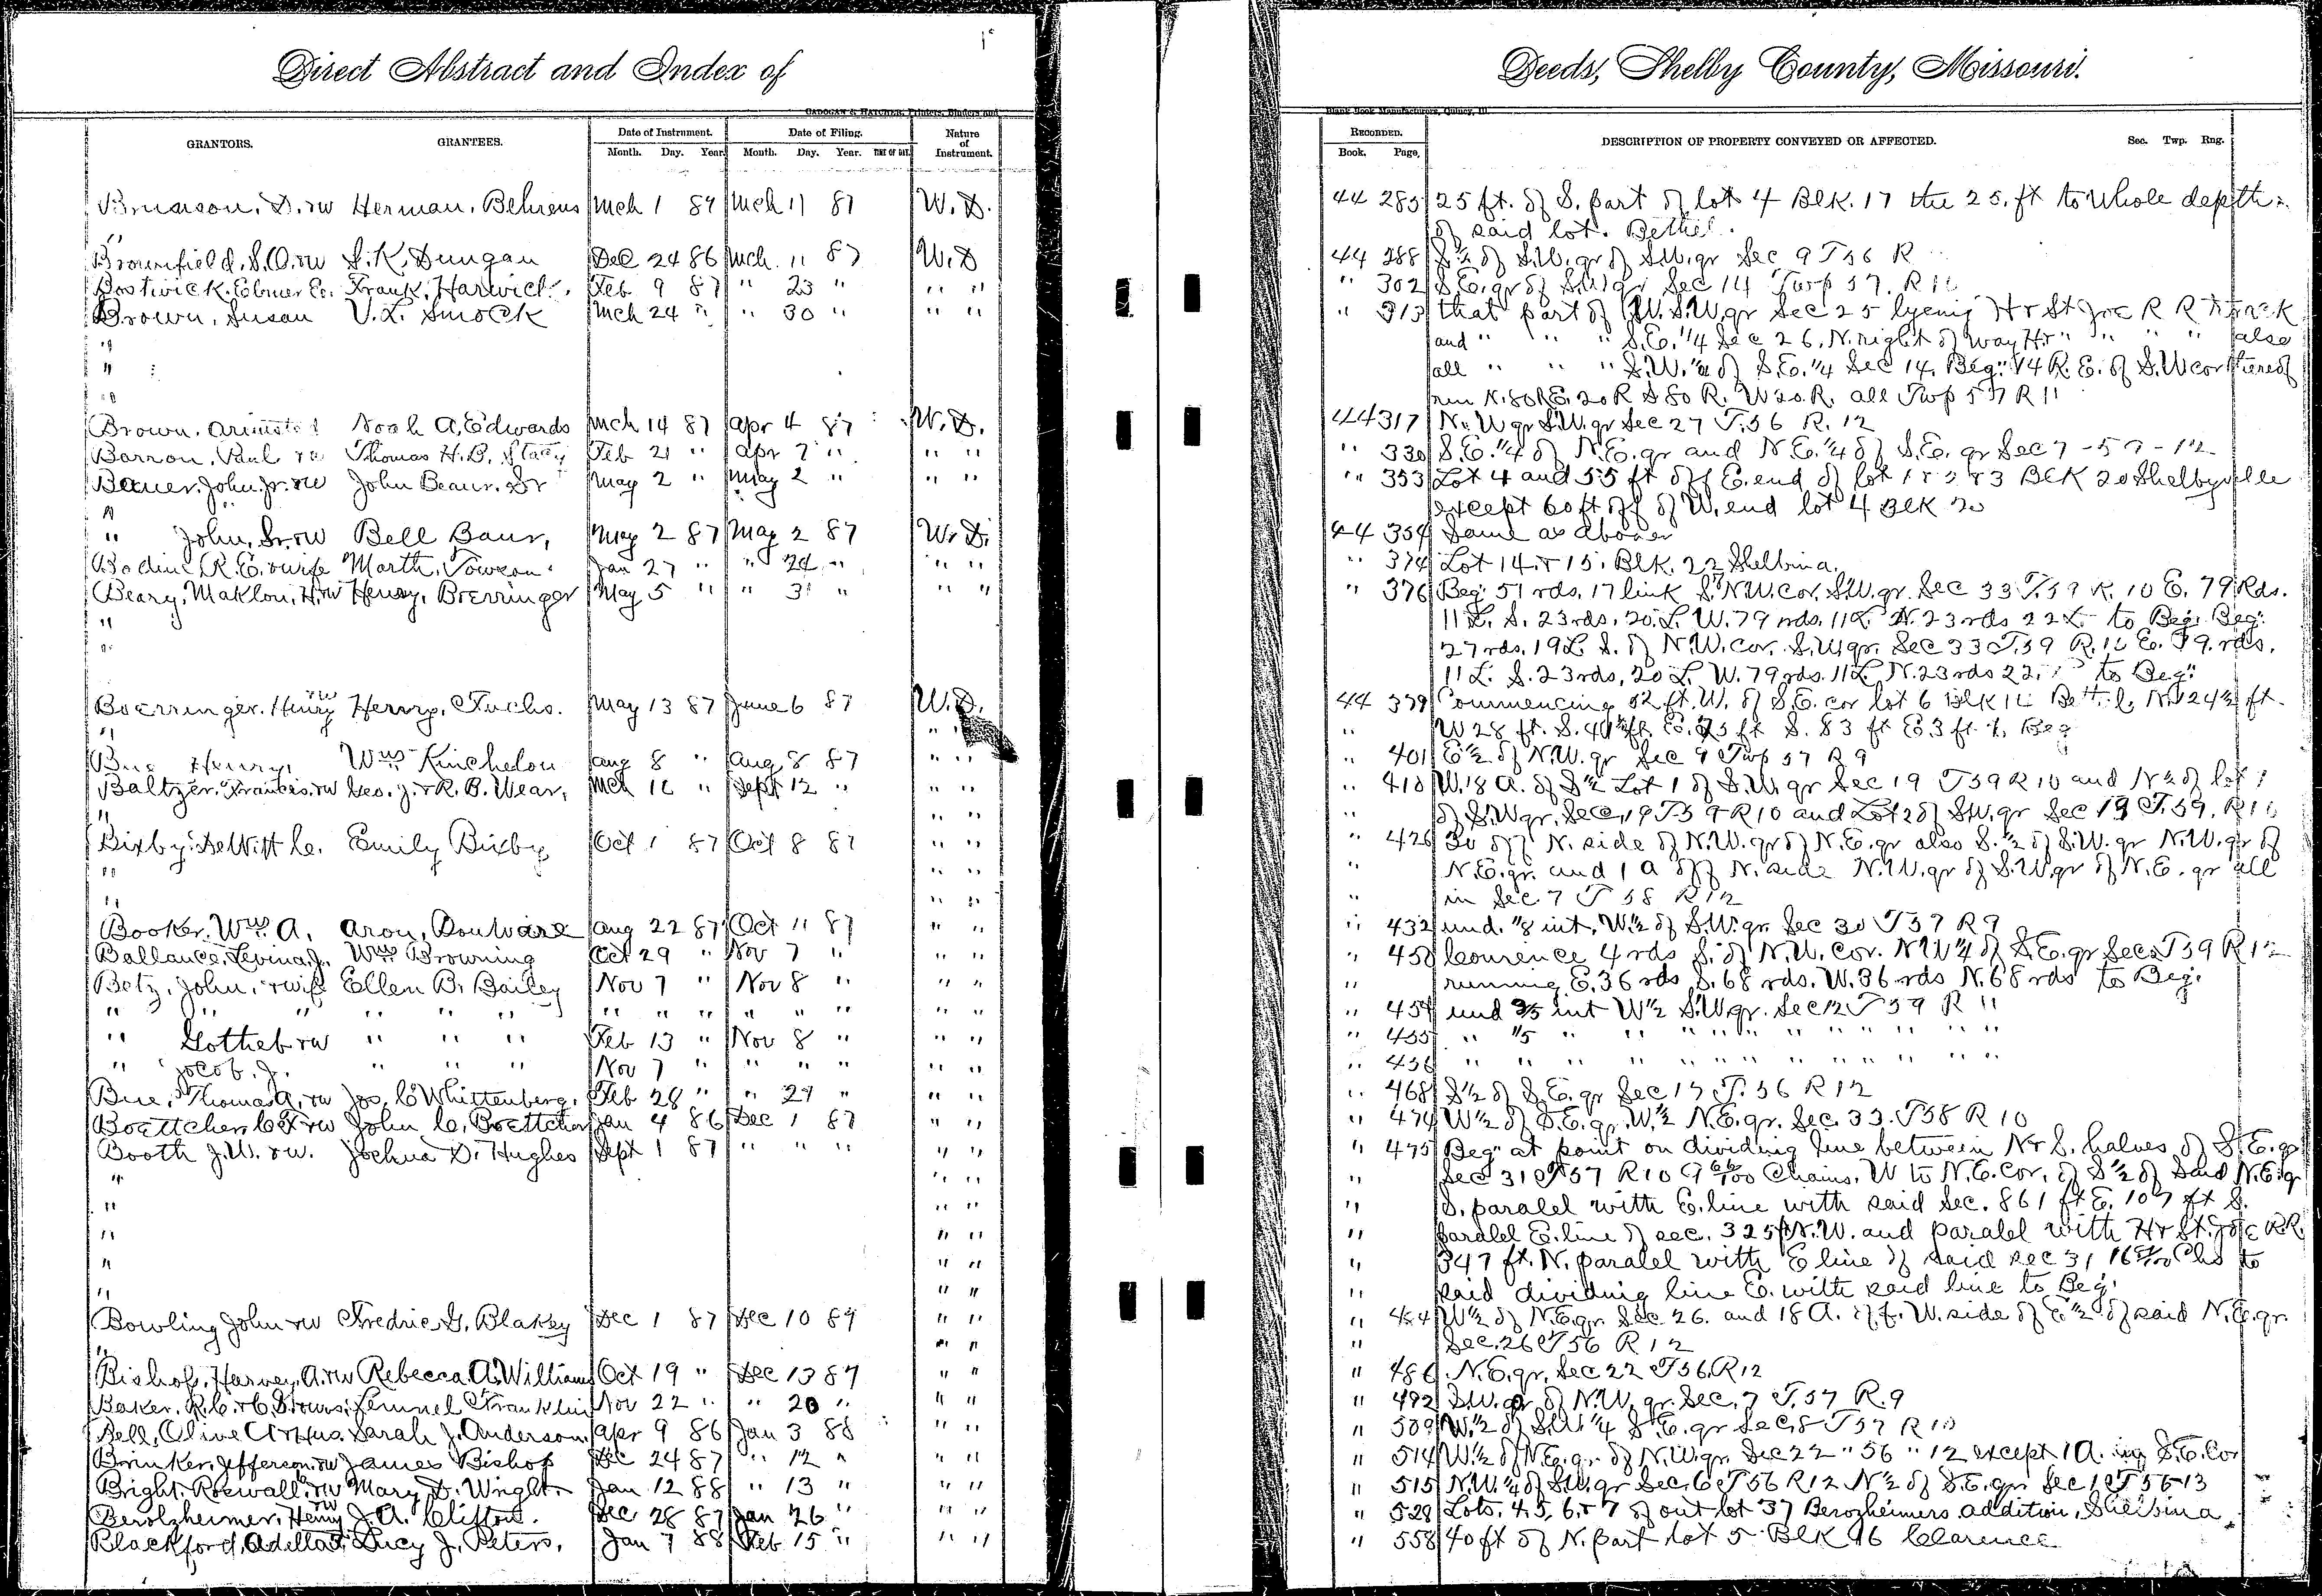 Direct Abstract and Index of
Deeds, Shelby County, Missouri.
CADOGAN & HATCHER, Printers, Binders and
Blank Book Manufacturers, Quincy, Ill.
GRANTORS. GRANTEES. Date of Instrument. Date of Filing. Nature of Instrument.
Month. Day. Year. Month. Day. Year. TIME OF DAY.
RECORDED. DESCRIPTION OF PROPERTY CONVEYED OR AFFECTED. Sec. Twp. Rng.
Book. Page.
D. &w Herman, Behrens Mch 1 87 Mch 11 87 W. D. 44 285 25 ft. of S. part of lot 4 Blk. 17 the 25. ft to whole depth
" of said lot. Bethel.
Brownfield, S.O. &w S. K. Dungan Dec 24 86 Mch. 11 87 W. D 44 288 S½ of S.W. qr of S.W. qr Sec 9 T56 R
Bostwick. Elmer E. Frank, Harwich. Feb 9 87 " 23 " " " " 302 S.E. qr of S.W qr Sec 14 Twp 57. R 11
Brown, Susan V. L. Smock Mch 24 " " 30 " " " " 313 that part of W. S.W. qr Sec 25 lyeing H & St Joe R R track
" and " " " S.E. ¼ Sec 26. N. right of way H & " " " " also
" all " " " S.W. ¼ of S.E. ¼ Sec 14. Beg. 14 R. E. of S.W cor thereof
" run N. 80 R E. 20 R S 80 R. W 20 R. all Twp 57 R 11
Brown. Noah A. Edwards Mch 14 87 Apr 4 87 W. D. 44 317 N. W qr S.W. qr Sec 27 T. 56 R. 12
Barron, Paul &w Thomas H. B. Stacy Feb 21 " Apr 7 " " " " 330 S. E. ¼ of N. E. qr and N. E. ¼ of S. E. qr Sec 7 - 57 - 12
Bauer, John, Jr. &w John Beaur. Sr May 2 " May 2 " " " " 353 Lot 4 and 55 ft off E. end of lot 1 & 2 & 3 BLK 20 Shelbyville
" except 60 ft off of W. end lot 4 Blk 20
" John, Sr. &w Bell Baur, May 2 87 May 2 87 W. D. 44 354 Same as above
Bodine R. E. & wife Marth. Towson Jan 27 " " 24 " " " " 374 Lot 14. & 15. Blk. 22 Shelbina.
Beary, Maklon, H. &w Henry, Boerringer May 5 " " 31 " " " " 376 Beg. 51 rds. 17 link S. N.W. cor. S.W. qr. Sec 33 T. 59 R. 10 E. 79 Rds.
" 11 L. S. 23 rds. 20. L. W. 79 rds. 11 L. N. 23 rds 22 L. to Beg. Beg.
" 27 rds. 19 L S. of N.W. cor. S.W. qr. Sec 33 T. 59 R. 10 E. 79. rds.
11 L. S. 23 rds, 20 L. W. 79 rds. 11 L N. 23 rds 22. to Beg.
Boerringer. Henry &w Henry, Fuchs. May 13 87 June 6 87 W. D. 44 379 Commencing 52 ft. W. of S.E. cor lot 6 Blk Bethel, N. 124½ ft.
" " " " W 28 ft. S. 41½ ft. E. 25 ft S. 83 ft E 3 ft. to Beg
Henry, Wm Kinchelou Aug 8 " Aug 8 87 " " " 401 E½ of N.W. qr Sec 9 Twp 57 R 9
Baltzer. Francis. &w Geo. J. & R. B. Wear, Mch 16 " Sept 12 " " " " 410 W. 18 A. of S½ Lot 1 of S.W. qr Sec 19 T 59 R 10 and N½ of lot 1
" " " " of S.W qr. Sec. 19 T 59 R 10 and Lot 2 of S.W. qr Sec 19 T. 59. R 10
Bixby. DeWitt C. Emily Bixby Oct 1 87 Oct 8 87 " " " 426 30 off N. side of N.W. qr of N.E. qr also S. ½ of S.W. qr N.W. qr of
" " " " N.E. qr. and 1 A off N. side N.W. qr of S.W qr of N.E. qr all
" " " " in Sec 7 T 58 R 12
Booker. Wm. A. Aron, Boulware Aug 22 87 Oct 11 87 " " " 432 und. ⅛ int. W.½ of S.W. qr. Sec 30 T 57 R 9
Ballance, Levina, J. Wm Browning Oct 29 " Nov 7 " " " " 450 4 rds S. of N.W. cor. N W ¼ of S.E. qr Sec T 59 R 12
Betz, John, & wife Ellen B. Bailey Nov 7 " Nov 8 " " " " running E. 36 rds S. 68 rds. W. 36 rds N. 68 rds to Beg.
" " " " " " " " " " " " " " " 454 und ⅗ int W½ S.W. qr. Sec 12 T 59 R 11
" Gotlieb &w " " " Feb 13 " Nov 8 " " " " 455 " ⅕ " " " " " " " " " "
" Jocob. J. " " " Nov 7 " " " " " " " 456 " " " " " " " " " " " "
Bue, Thomas A. &w Jos. C Whittenberg, Feb 28 " " 29 " " " " 468 S½ of S. E. qr Sec 17 T. 56 R 12
Boettcher C. F &w John C. Boettcher Jan 4 86 Dec 1 87 " " " 474 W½ of S. E. qr. W½ N.E. qr. Sec. 33. T 58 R 10
Booth J. W. &w. Joshua D. Hughes Sept 1 87 " " " " " " 475 Beg at point on dividing line between N & S. halves of S. E. qr
" " " " Sec 31 T 57 R 10 Chains. W to N.E. Cor. of S½ of Said N.E. qr
" " " " S. paralel with E. line with said Sec. 861 ft E. 107 ft S.
" " " " paralel E. line of sec. 325 ft N. W. and paralel with H & St. Joe R.R.
" " " " 347 ft. N. paralel with E line of said sec 31 Chs to
" " " " said dividing line E. with said line to Beg.
Bowling John &w Fredric G, Blakey Dec 1 87 Dec 10 87 " " " W½ of N.E. qr. Sec 26. and 18 A. off. W. side of E½ of said N.E. qr
" " " Sec. 26 T 56 R 12
Bishop, Harvey, A. &w Rebecca A. Williams Oct 19 " Dec 13 87 " " " 486 N.E. qr. Sec 22 T 56. R 12
Baker. R. C. & C. Franklin Nov 22 " " 20 " " " " 492 S.W. qr of N.W. qr. Sec. 7 T. 57 R. 9
Bell, Olive C & Hus. Sarah J. Anderson Apr 9 86 Jan 3 88 " " " 509 W. ½ of S.W ¼ S. E. qr Sec. 8 T 57 R 10
Brinker, Jefferson &w James Bishop Dec 24 87 " 12 " " " " 514 W½ of N.E. qr. of N.W. qr. Sec 22 " 56 " 12 except 1 A. in S.E. Cor
Bright. Roswall. &w Mary D. Wright Jan 12 88 " 13 " " " " 515 N.W. ¼ of S.W. qr Sec. 6 T 56 R 12 N½ of S. E. qr Sec 1 T 56 - 13
Berolzheimer, Henry &w J. A. Clifton. Dec 28 87 Jan 26 " " " " 529 Lots, 4. 5, 6, & 7 of out lot 37 Berozheimers addition, Shelbina
Blackford, Adella Lucy J. Peters, Jan 7 88 Feb 15 " " " " 558 40 ft of N. part lot 5 Blk 16 Clarence